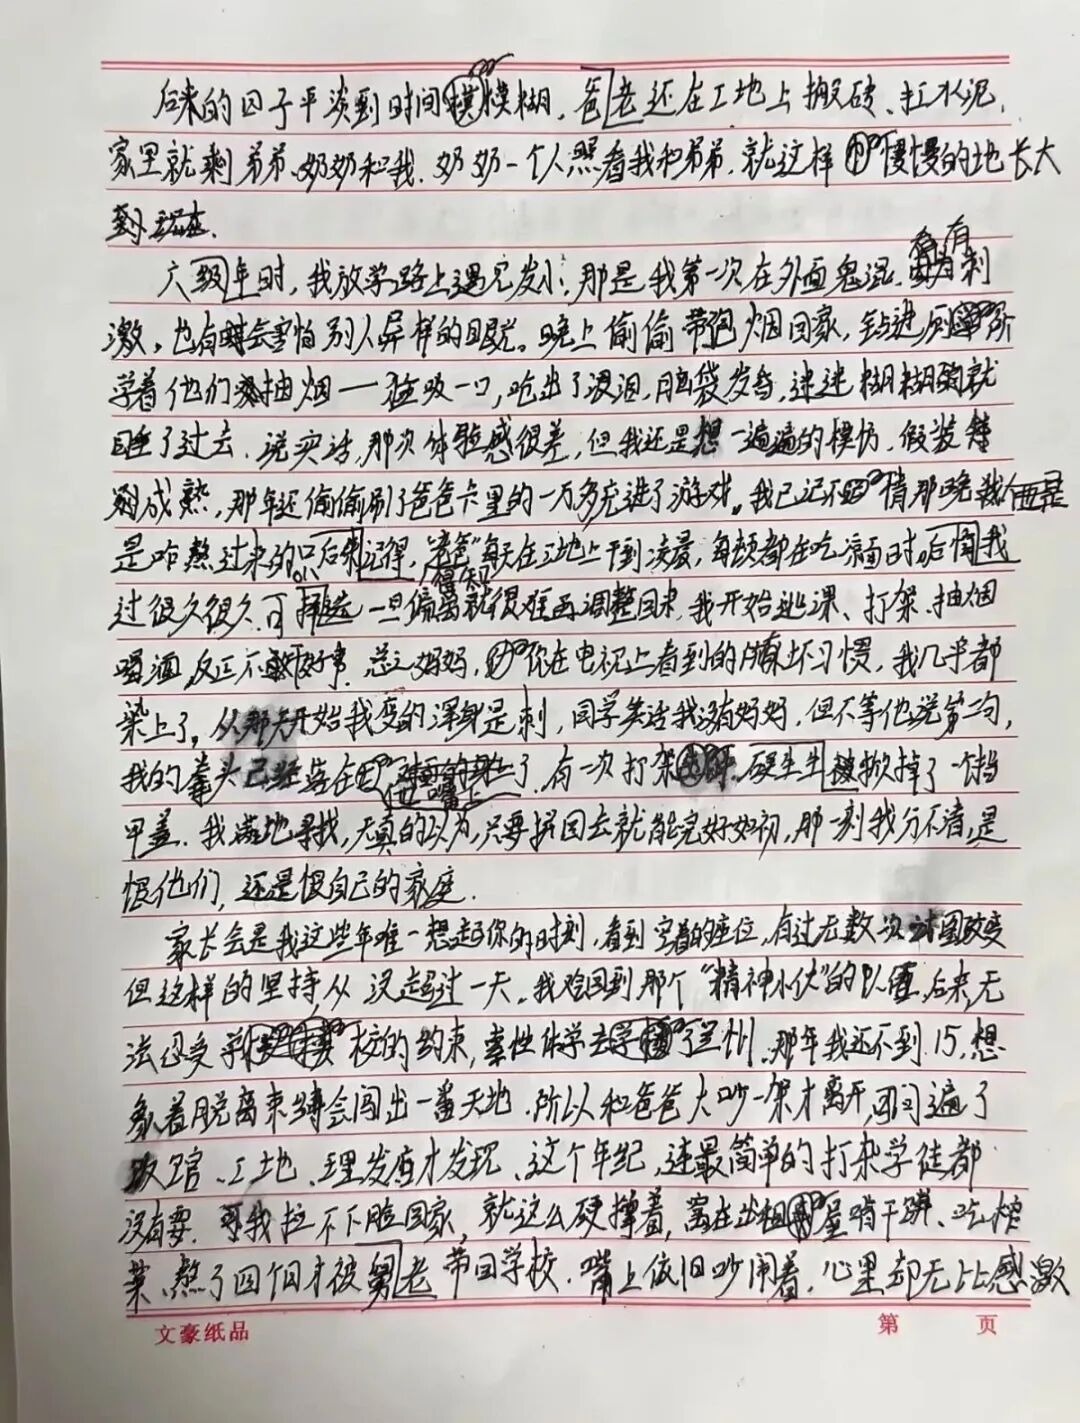 后来的日子平淡到时间模糊，爸老还在工地上搬砖、扛水泥，
家里就剩弟弟、奶奶和我，奶奶一个人照看我和弟弟，就这样慢慢的地长大
到现在，
六级年时，我放学路上遇见发小，那是我第一次在外面鬼混，有刺
激，也有时会害怕别人异样的眼光。晚上偷偷带包烟回家，钻进厕所
学着他们抽烟一猛吸一口，呛出了眼泪，脑袋发昏，迷迷糊糊就
睡了过去，说实话，那次体验感很差，但我还是想一遍遍的模仿，假装
成熟，那年还偷偷刷了爸爸卡里的一万多充进了游戏。我已记不清那晚
是咋熬过来的只后来记得，"爸爸"每天在工地上干到凌晨，每顿都在吃凉面时，后悔我
得知
过很久很久，可择选一旦偏离就很难再调整回来，我开始逃课、打架、抽烟
喝酒，反正不做好事，总之妈妈，你在电视上看到的所有坏习惯，我几乎都
染上了，从那天开始我变的浑身是刺，同学笑话我没有妈妈，但不等他说第二句，
我的拳头已经落在他嘴上了，有一次打架，硬生生被掀掉了一个指
甲盖，我满地寻找，天真的以为，只要拼回去就能完好如初，那一刻我分不清，是
恨他们，还是恨自己的家庭．
家长会是我这些年唯一想起你的时刻，看到空着的座位，有过无数次试图改变
但这样的坚持，从没超过一天。我唸回到那个"精神小伙"的队伍，后来，无
法忍受学校的约束，索性休学去了兰州，那年我还不到15，想
象着脱离束缚会闯出一番天地，所以和爸爸大吵一架才离开，可问遍了
饭馆、工地、理发店才发现、这个年纪，连最简单的打杂学徒都
没有要．可我拉不下脸回家，就这么硬撑着，窝在出租屋啃干饼、吃榨
菜，熬了四个月才被舅老带回学校，嘴上依旧吵闹着，心里却无比感激
文豪纸品 第 页